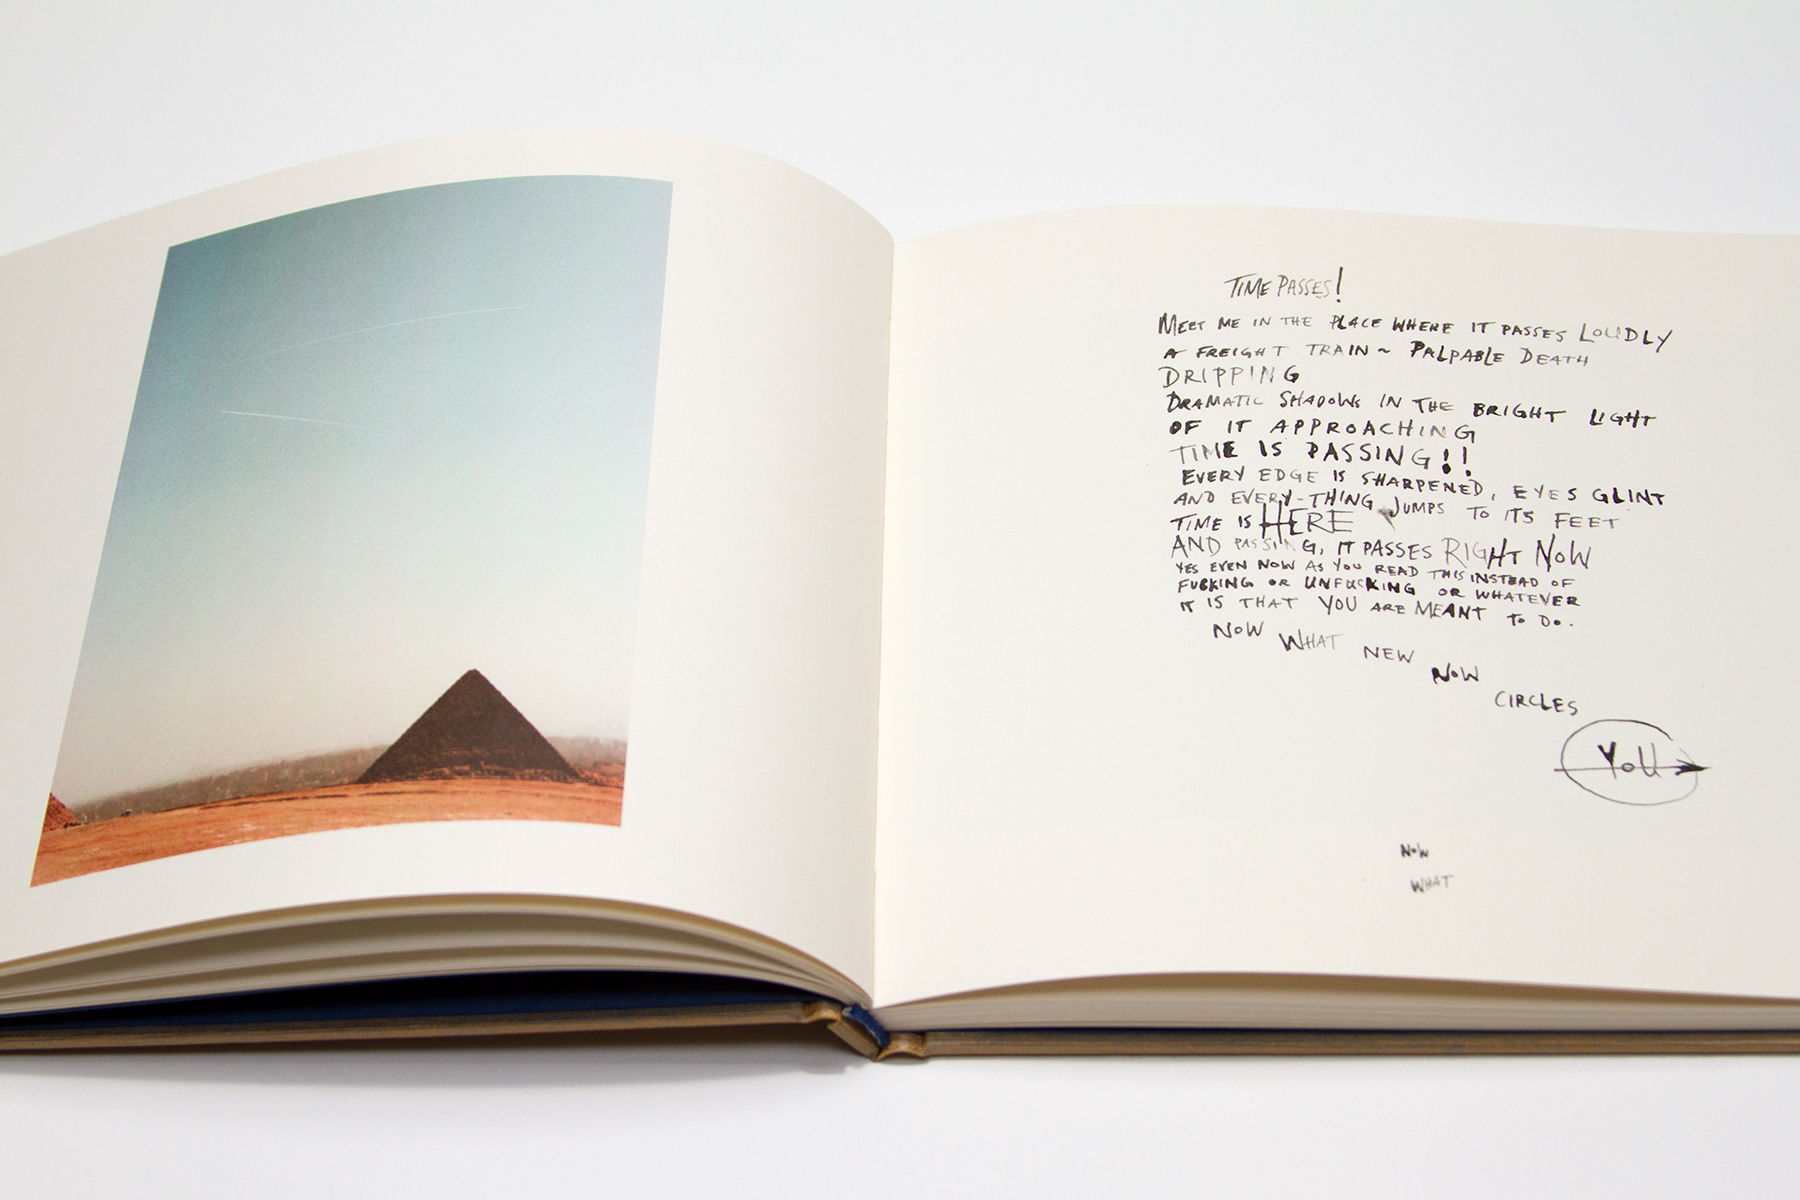 TIME PASSES!
MEET ME IN THE PLACE WHERE IT PASSES LOUDLY
A FREIGHT TRAIN ~ PALPABLE DEATH
DRIPPING
DRAMATIC SHADOWS IN THE BRIGHT LIGHT
OF IT APPROACHING
TIME IS PASSING!!
EVERY EDGE IS SHARPENED, EYES GLINT
AND EVERY-THING JUMPS TO ITS FEET
TIME IS HERE
AND PASSING, IT PASSES RIGHT NOW
YES EVEN NOW AS YOU READ THIS INSTEAD OF
FUCKING OR UNFUCKING OR WHATEVER
IT IS THAT YOU ARE MEANT TO DO.
NOW WHAT NEW NOW
CIRCLES
YOU
NOW
WHAT